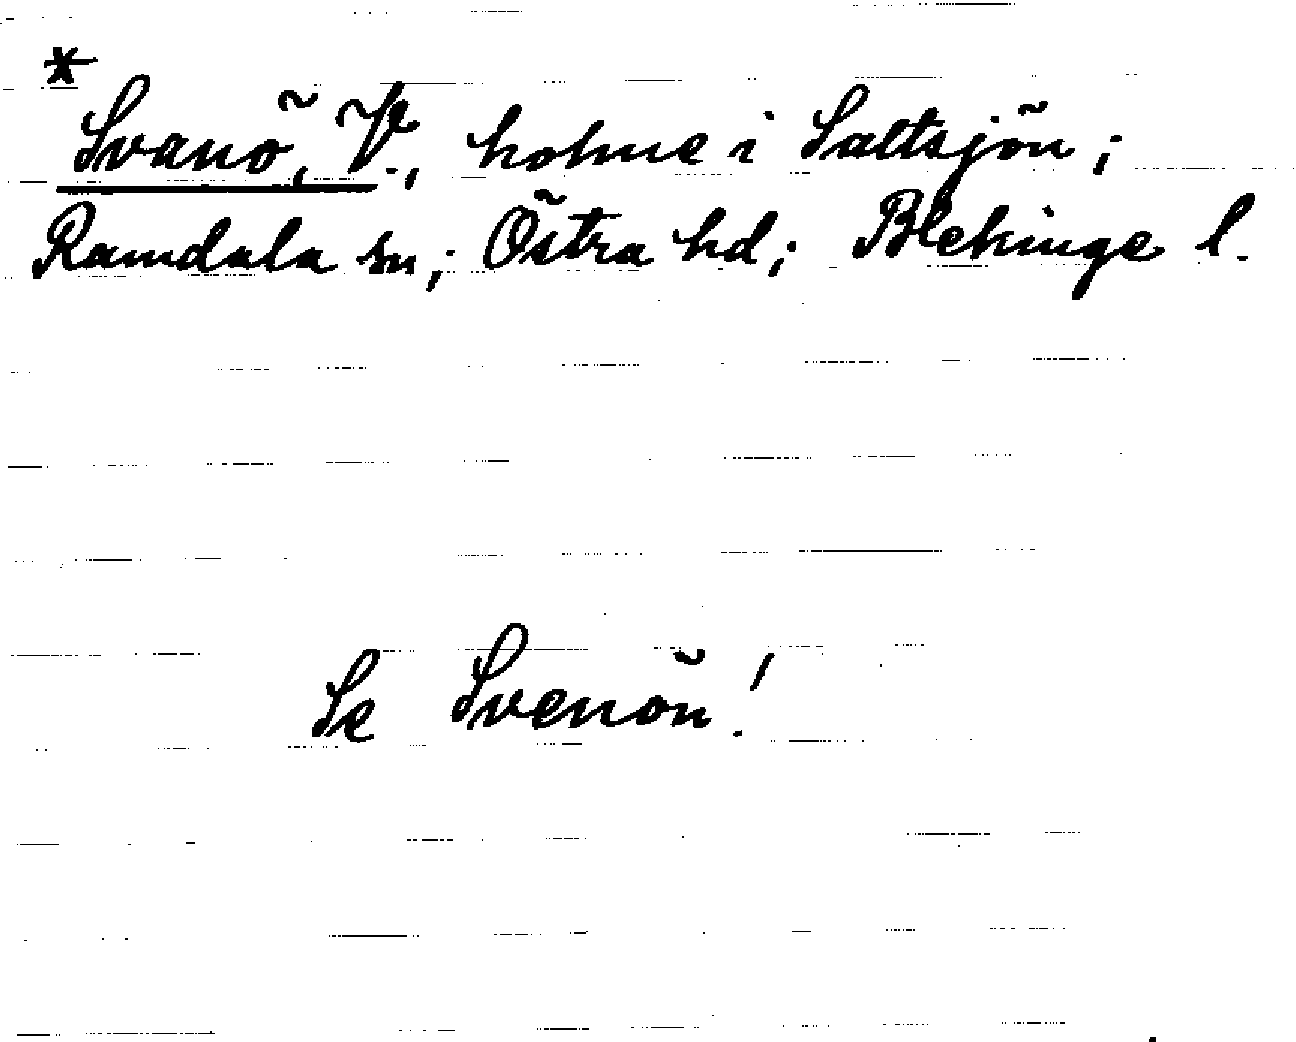 *
Svanö, V., holme i Saltsjön;
Ramdala sn; Östra hd; Blekinge l.
Se Svenön!